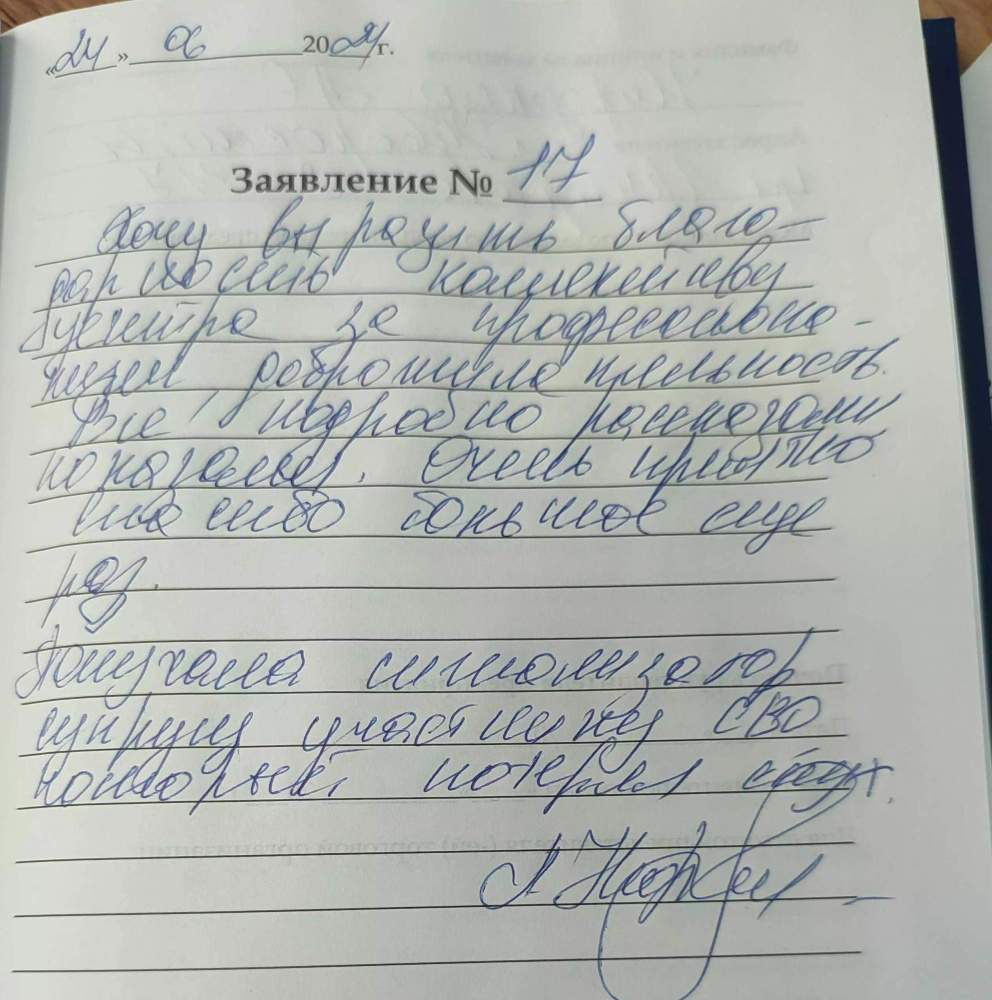 «24» 06 2024 г.
Заявление № 17
Хочу выразить благо-
дарность коллективу
центра за профессиона-
лизм, доброжелательность.
Все подробно рассказали
показали. Очень приятно
спасибо большое еще
раз.
Получала сигнализатор
супругу участнику СВО
который потерял слух.